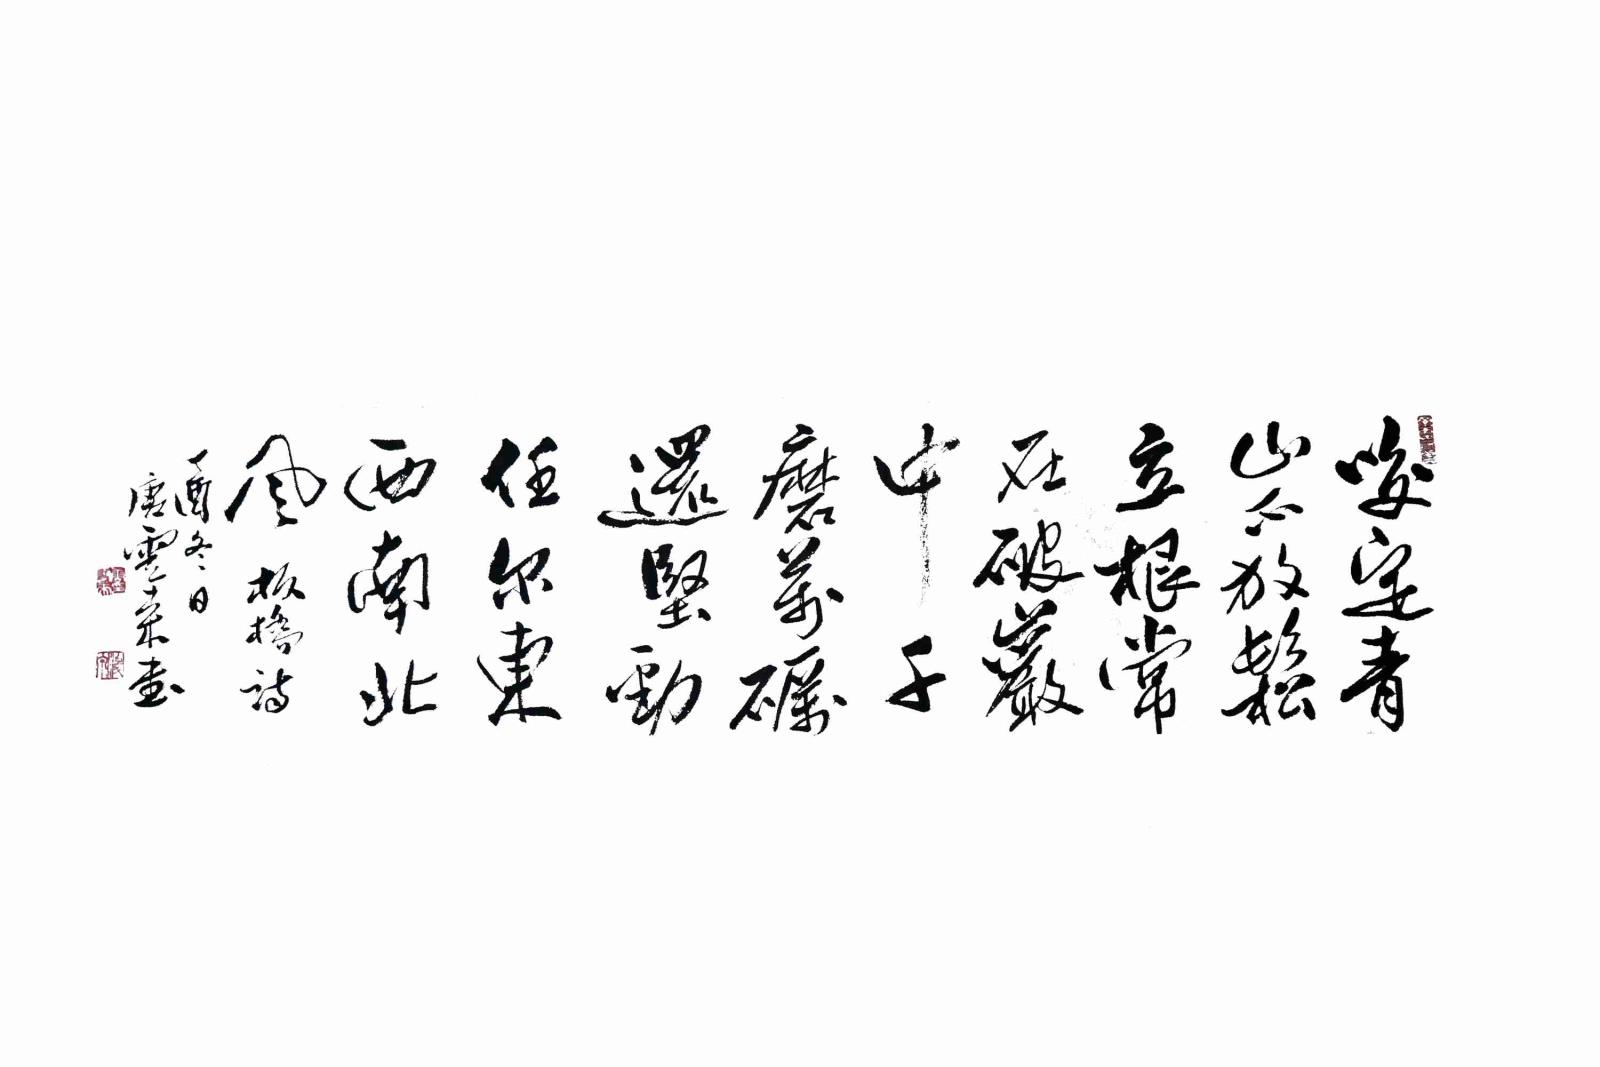 咬定青
山不放鬆
立根常
在破巖
中千
磨萬礪
還堅勁
任尔東
西南北
風 板橋詩
丁酉冬日
唐雲来書